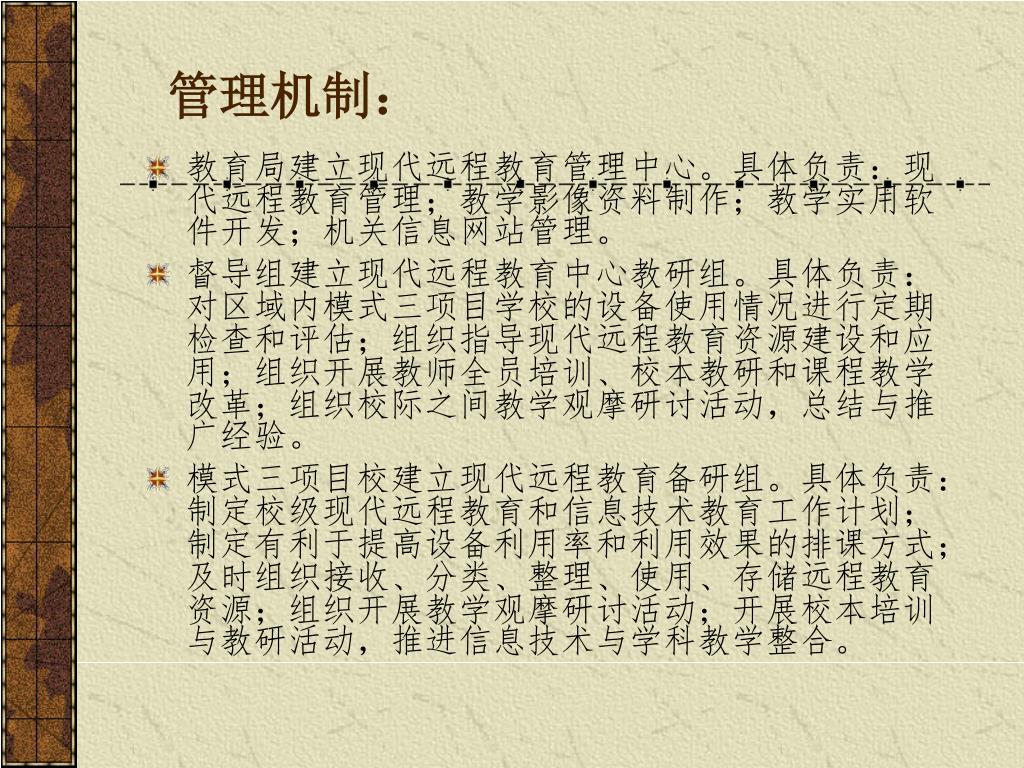 管理机制：
教育局建立现代远程教育管理中心。具体负责：现
代远程教育管理；教学影像资料制作；教学实用软
件开发；机关信息网站管理。
督导组建立现代远程教育中心教研组。具体负责：
对区域内模式三项目学校的设备使用情况进行定期
检查和评估；组织指导现代远程教育资源建设和应
用；组织开展教师全员培训、校本教研和课程教学
改革；组织校际之间教学观摩研讨活动，总结与推
广经验。
模式三项目校建立现代远程教育备研组。具体负责：
制定校级现代远程教育和信息技术教育工作计划；
制定有利于提高设备利用率和利用效果的排课方式；
及时组织接收、分类、整理、使用、存储远程教育
资源；组织开展教学观摩研讨活动；开展校本培训
与教研活动，推进信息技术与学科教学整合。